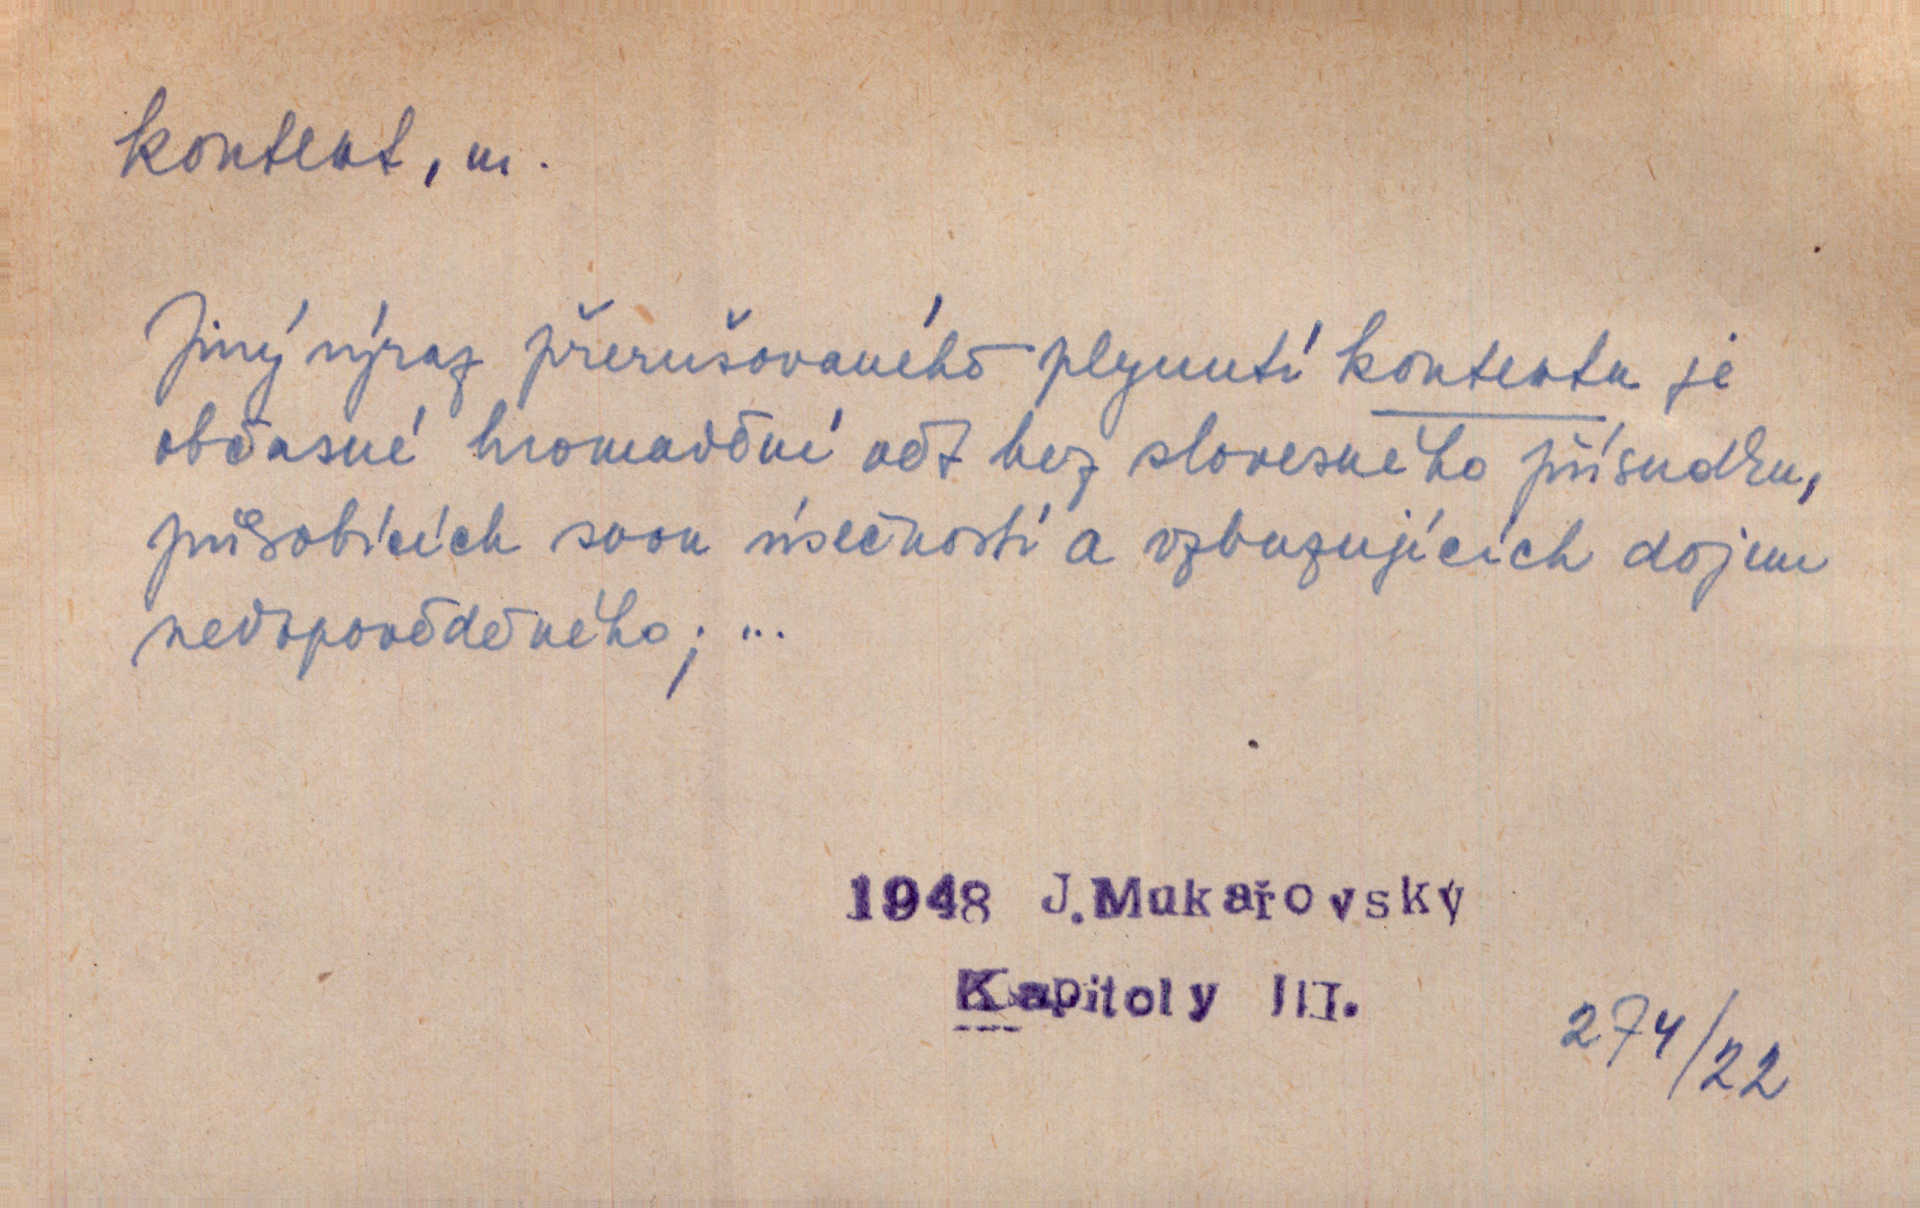 kontext, m.
Jiný výraz přerušovaného plynutí kontextu je
občasné hromadění vět bez slovesného přísudku,
působících svou úsečností a vzbuzujících dojem
nedopověděného; ...
1948 J. Mukařovský
Kapitoly III.
274/22